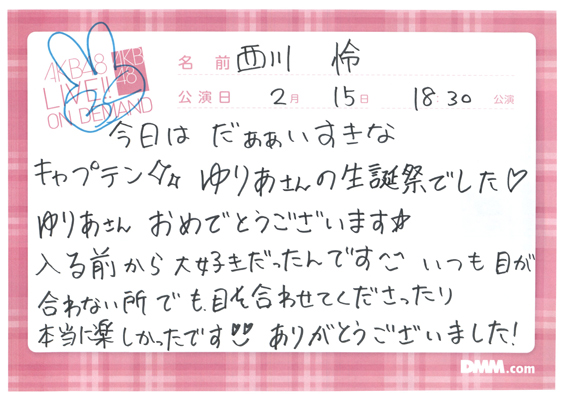 AKB48
LIVE!!
ON DEMAND
AKB
48
名前 西川 怜
公演日 2月 15日 18:30 公演
今日は だぁぁぁいすきな
キャプテン☆☆ ゆりあさんの生誕祭でした♡
ゆりあさん おめでとうございます☆
入る前から大好きだったんです^^ いつも目が
合わない所でも、目を合わせてくださったり
本当に楽しかったです ありがとうございました!
DMM.com